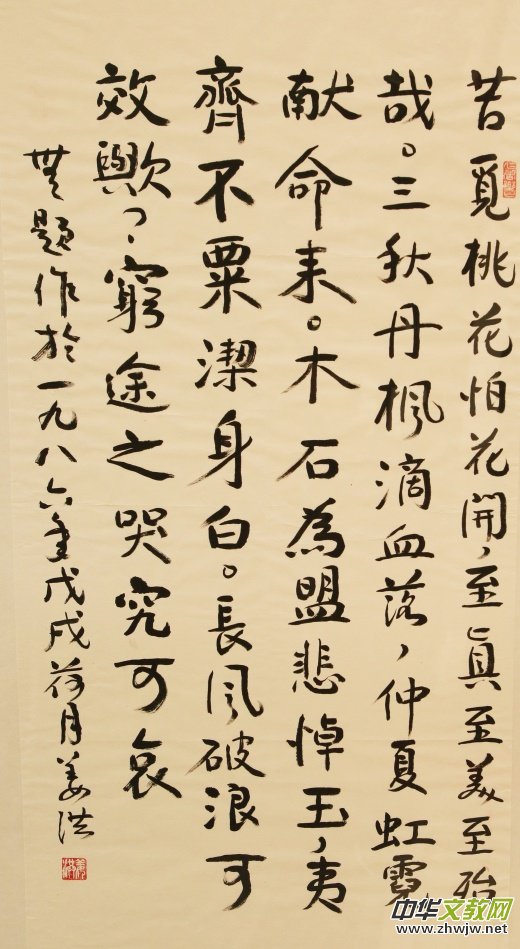 苦覓桃花怕花開，至眞至美至殆
哉。三秋丹楓滴血落，仲夏虹霓
献命来。木石為盟悲悼玉，夷
齊不粟潔身白。長风破浪可
效歟？窮途之哭究可哀
無題作於一九八六年戊戌荷月姜洪
中华文教网
www.zhwjw.net